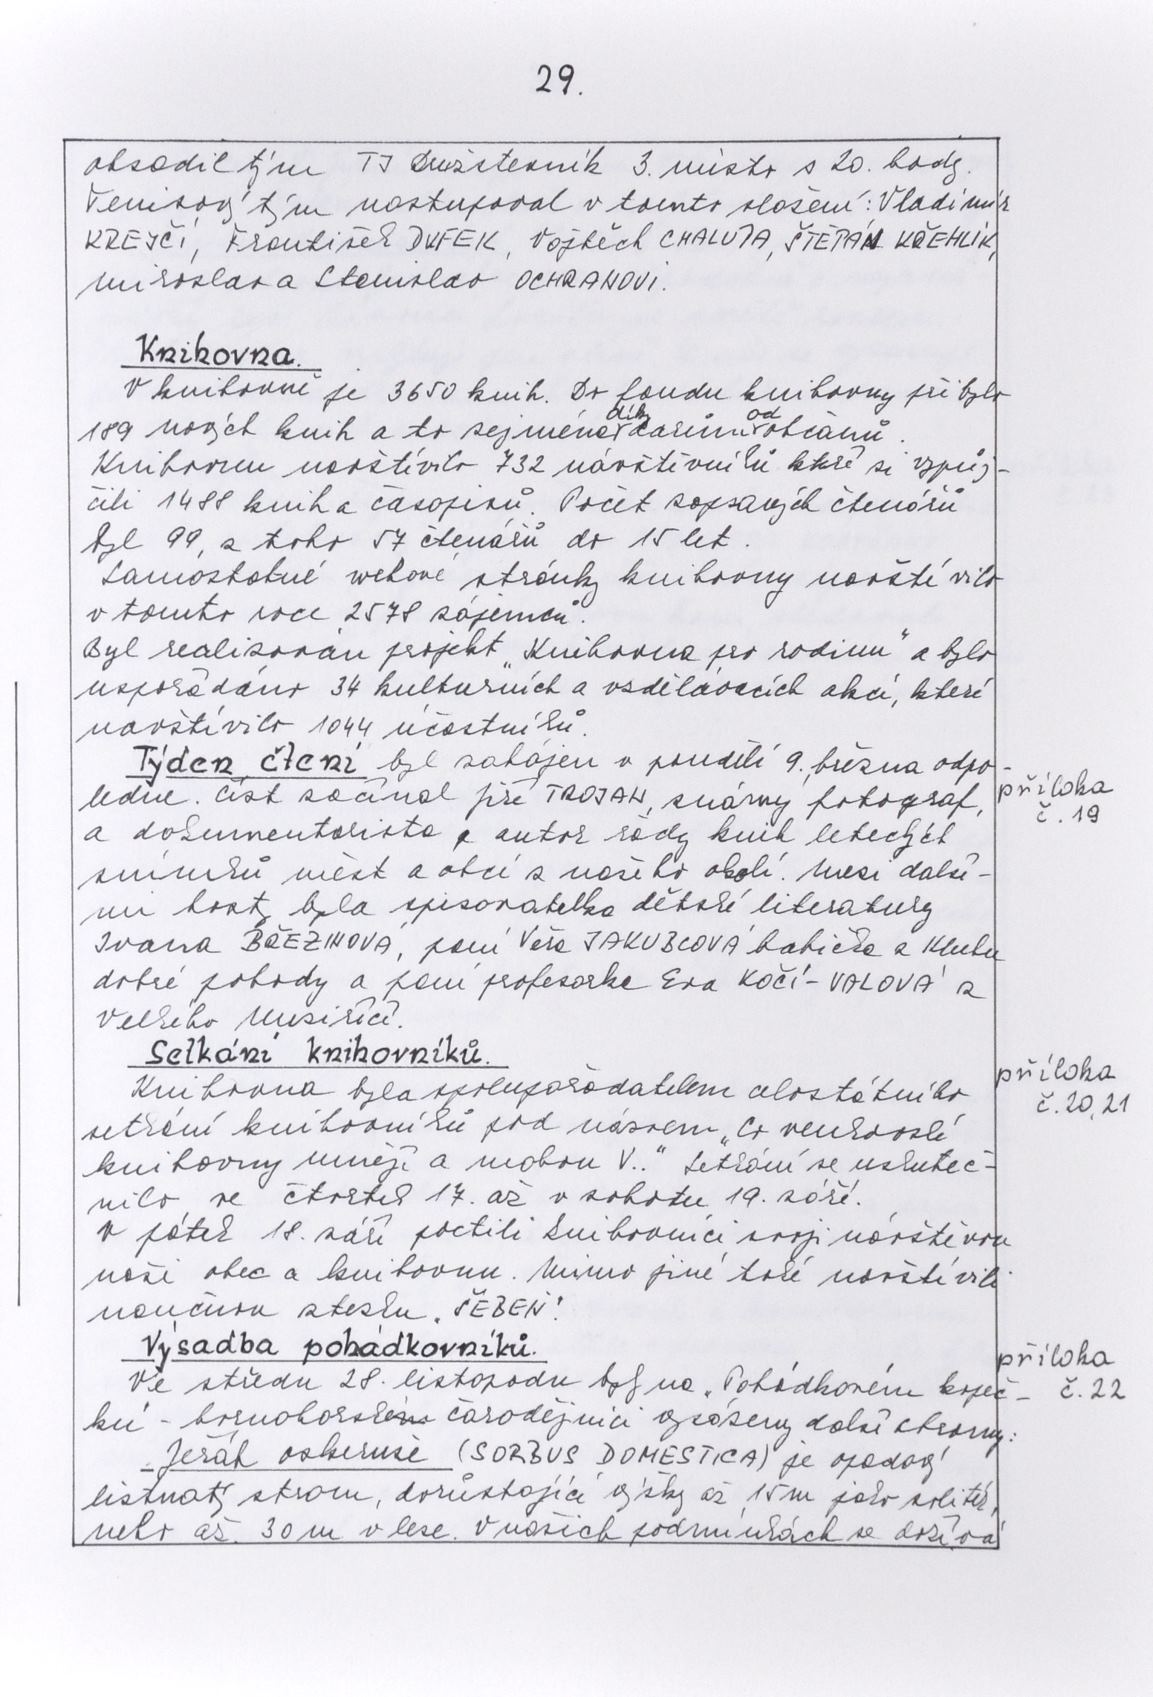 29.
obsadil tým TJ Družstevník 3. místo s 20. body.
Tenisový tým nastupoval v tomto složení: Vladimír
KREJČÍ, František DUFEK, Vojtěch CHALUPA, ŠTĚPÁN KŘEHLÍK,
Miroslav a Stanislav OCHRANOVI.
Knihovna.
V knihovně je 3650 knih. Do fondu knihovny přibylo
189 nových knih a to zejména díky darům od občanů.
Knihovnu navštívilo 732 návštěvníků kteří si vypůj-
čili 1488 knih a časopisů. Počet zapsaných čtenářů
byl 99, z toho 57 čtenářů do 15 let.
Samostatné webové stránky knihovny navštívilo
v tomto roce 2578 zájemců.
Byl realizován projekt „Knihovna pro rodinu" a bylo
uspořádáno 34 kulturních a vzdělávacích akcí, které
navštívilo 1044 účastníků.
Týden čtení byl zahájen v pondělí 9. března odpo-
příloha
č. 19
ledne. Číst začínal Jiří TROJAN, známý fotograf,
a dokumentarista, autor řady knih leteckých
snímků měst a obcí z našeho okolí. Mezi další-
mi hosty byla spisovatelka dětské literatury
Ivana BŘEZINOVÁ, paní Věra JAKUBCOVÁ babička z Klubu
dobré pohody a paní profesorka Eva KOČÍ-VALOVÁ z
Velkého Meziříčí.
Setkání knihovníků.
příloha
č. 20, 21
Knihovna byla spolupořadatelem celostátního
setkání knihovníků pod názvem „Co venkovské
knihovny umějí a mohou V.." Setkání se uskuteč-
nilo ve čtvrtek 17. až v sobotu 19. září.
V pátek 18. září poctili knihovníci svojí návštěvou
naši obec a knihovnu. Mimo jiné také navštívili
naučnou stezku „ŠEBEŇ".
Výsadba pohádkovníků.
příloha
č. 22
Ve středu 28. listopadu byly na „Pohádkovém kopeč-
ku" - čarodějnici vysázeny další stromy:
Jeřáb oskeruše (SORBUS DOMESTICA) je opadavý
listnatý strom, dorůstající výšky až 15 m jako solitér,
nebo až 30 m v lese. V našich podmínkách se dožívá